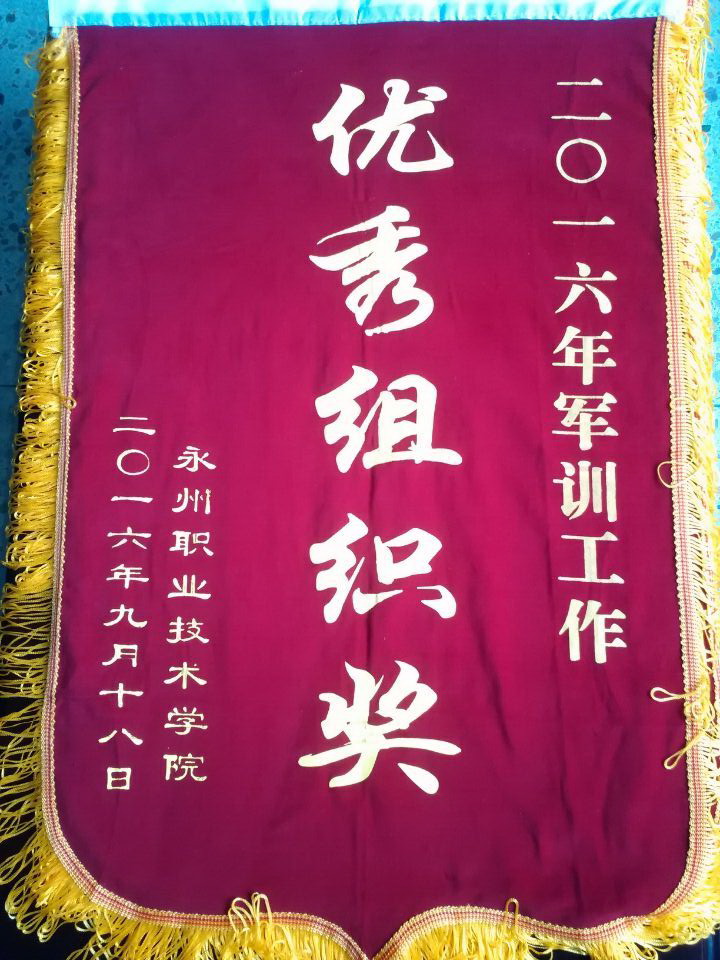 二〇一六年军训工作
优秀组织奖
永州职业技术学院
二〇一六年九月十八日